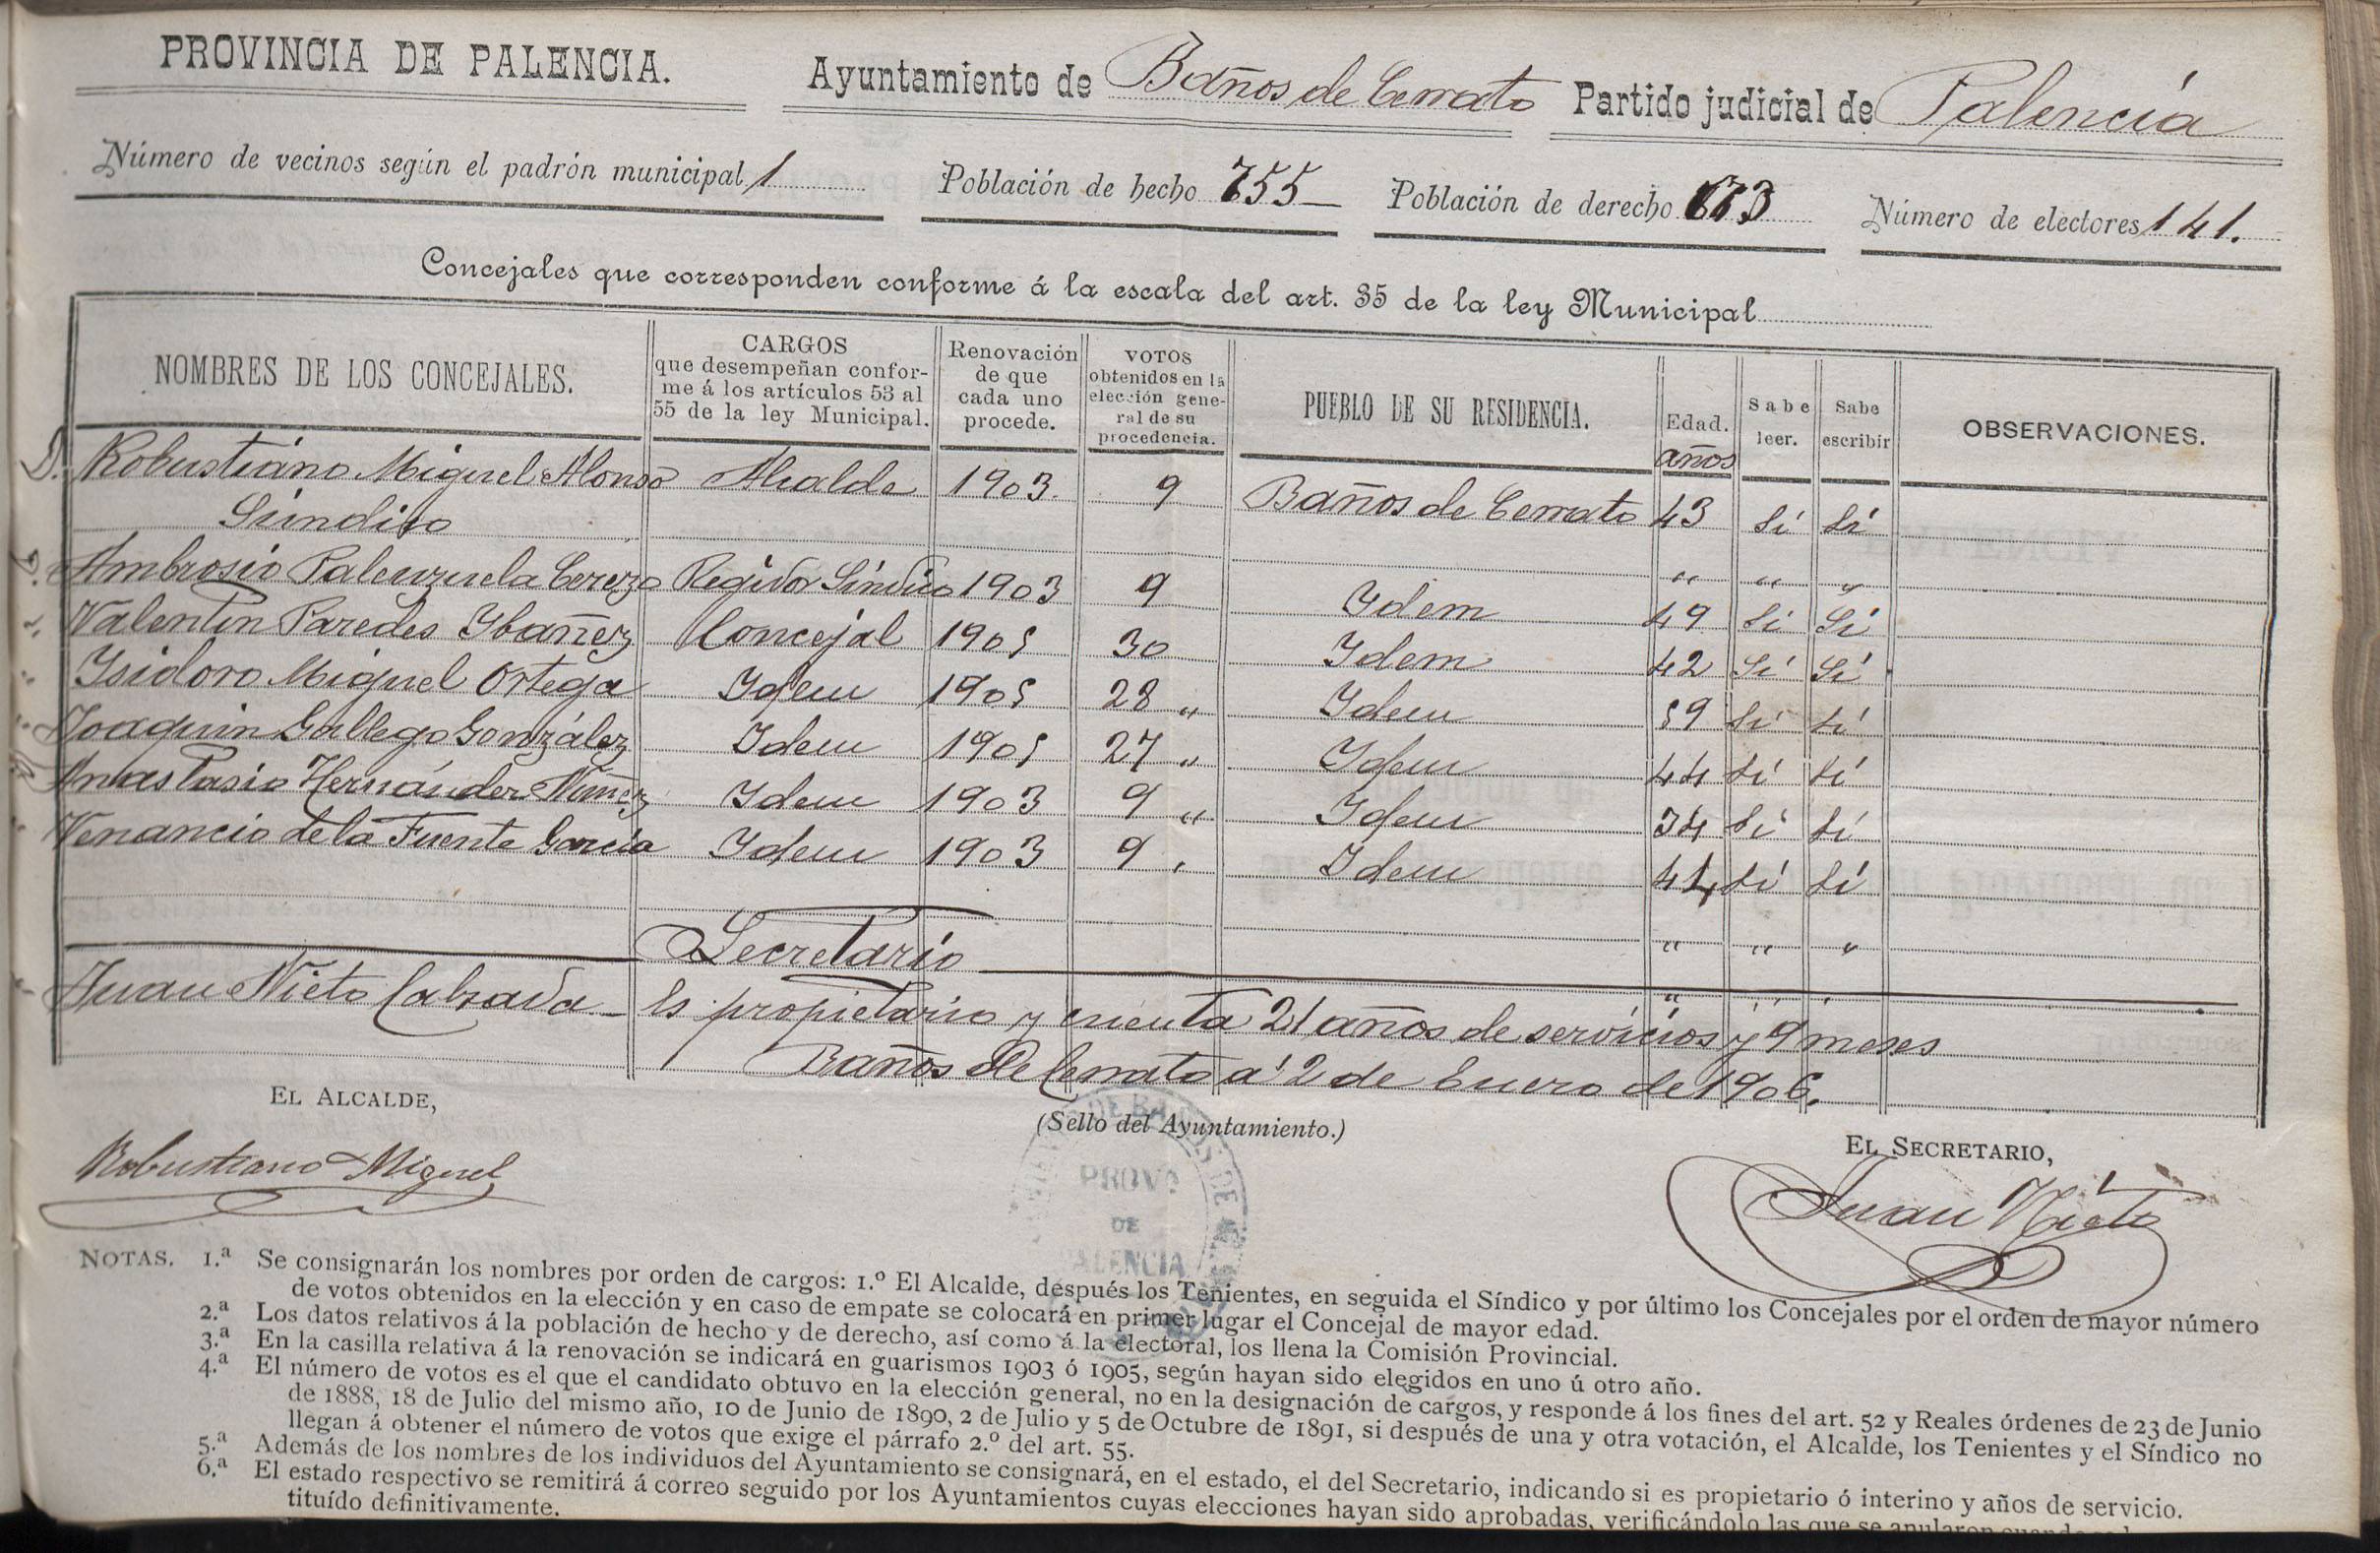 PROVINCIA DE PALENCIA. Ayuntamiento de Baños de Cerrato Partido judicial de Palencia
Número de vecinos según el padrón municipal 1 Población de hecho 755 Población de derecho 673 Número de electores 141.
Concejales que corresponden conforme á la escala del art. 35 de la ley Municipal
NOMBRES DE LOS CONCEJALES. CARGOS que desempeñan conforme á los artículos 53 al 55 de la ley Municipal. Renovación de que cada uno procede. VOTOS obtenidos en la elección general de su procedencia. PUEBLO DE SU RESIDENCIA. Edad. Sabe leer. Sabe escribir OBSERVACIONES.
años
D. Robustiano Miguel Alonso Alcalde 1903. 9 Baños de Cerrato 43 Sí Sí
Síndico " " "
Ambrosio Palenzuela Cerezo Regidor Síndico 1903 9 Idem 49 Sí Sí
Valentín Paredes Ibañez Concejal 1905 30 Idem 42 Sí Sí
Isidoro Miguel Ortega Idem 1905 28 " Idem 59 Sí Sí
Joaquin Gallego González Idem 1905 27 " Idem 44 Sí Sí
Anastasio Hernández Núñez Idem 1903 9 " Idem 34 Sí Sí
Venancio de la Fuente García Idem 1903 9 " Idem 44 Sí Sí
Secretario " " "
Juan Nieto Calzada - Es propietario y cuenta 21 años de servicios y 9 meses
Baños de Cerrato á 2 de Enero de 1906.
EL ALCALDE, (Sello del Ayuntamiento.) EL SECRETARIO,
Robustiano Miguel Juan Nieto
PROVª
DE
PALENCIA
NOTAS. 1.ª Se consignarán los nombres por orden de cargos: 1.º El Alcalde, después los Tenientes, en seguida el Síndico y por último los Concejales por el orden de mayor número
de votos obtenidos en la elección y en caso de empate se colocará en primer lugar el Concejal de mayor edad.
2.ª Los datos relativos á la población de hecho y de derecho, así como á la electoral, los llena la Comisión Provincial.
3.ª En la casilla relativa á la renovación se indicará en guarismos 1903 ó 1905, según hayan sido elegidos en uno ú otro año.
4.ª El número de votos es el que el candidato obtuvo en la elección general, no en la designación de cargos, y responde á los fines del art. 52 y Reales órdenes de 23 de Junio
de 1888, 18 de Julio del mismo año, 10 de Junio de 1890, 2 de Julio y 5 de Octubre de 1891, si después de una y otra votación, el Alcalde, los Tenientes y el Síndico no
llegan á obtener el número de votos que exige el párrafo 2.º del art. 55.
5.ª Además de los nombres de los individuos del Ayuntamiento se consignará, en el estado, el del Secretario, indicando si es propietario ó interino y años de servicio.
6.ª El estado respectivo se remitirá á correo seguido por los Ayuntamientos cuyas elecciones hayan sido aprobadas, verificándolo las que se anularon
tituído definitivamente.